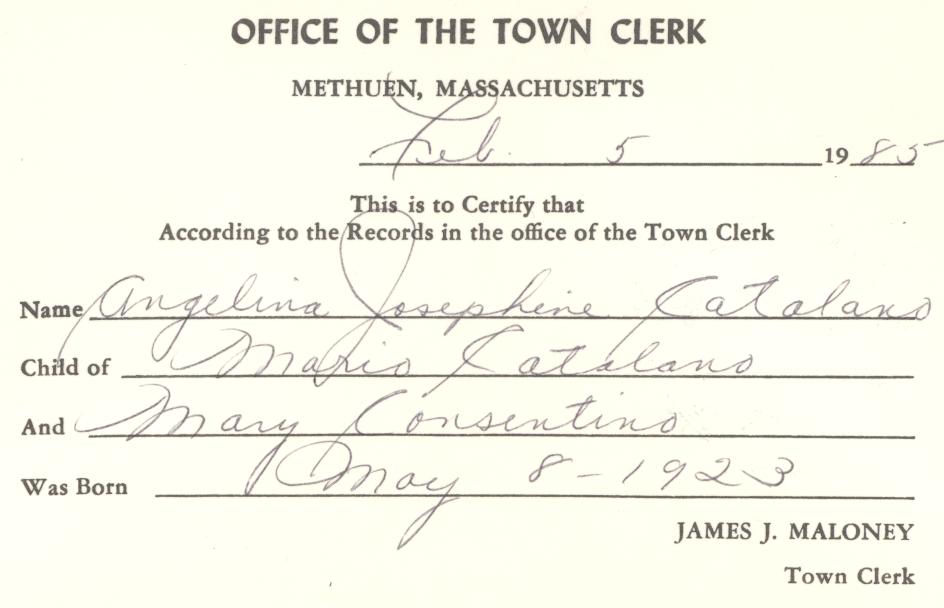 OFFICE OF THE TOWN CLERK
METHUEN, MASSACHUSETTS
Feb. 5 1985
This is to Certify that
According to the Records in the office of the Town Clerk
Name Angelina Josephine Catalano
Child of Mario Catalano
And Mary Consentino
Was Born May 8-1923
JAMES J. MALONEY
Town Clerk